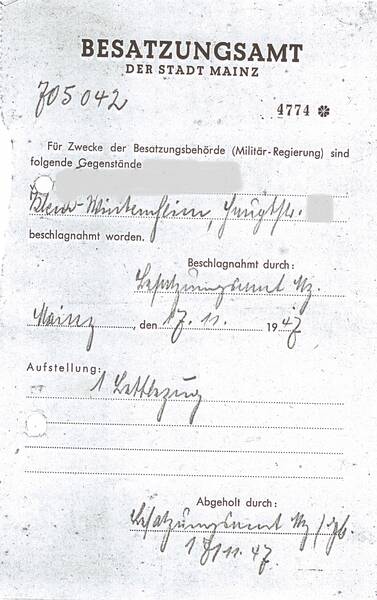 BESATZUNGSAMT
DER STADT MAINZ
705042
4774 ✽
Für Zwecke der Besatzungsbehörde (Militär-Regierung) sind
folgende Gegenstände
Klein-Winternheim, Hauptstr.
beschlagnahmt worden.
Beschlagnahmt durch:
Besatzungsamt Mz.
Mainz, den 17. 11. 1947
Aufstellung:
1 Bettbezug
Abgeholt durch:
Besatzungsamt Mz /
11. 47.